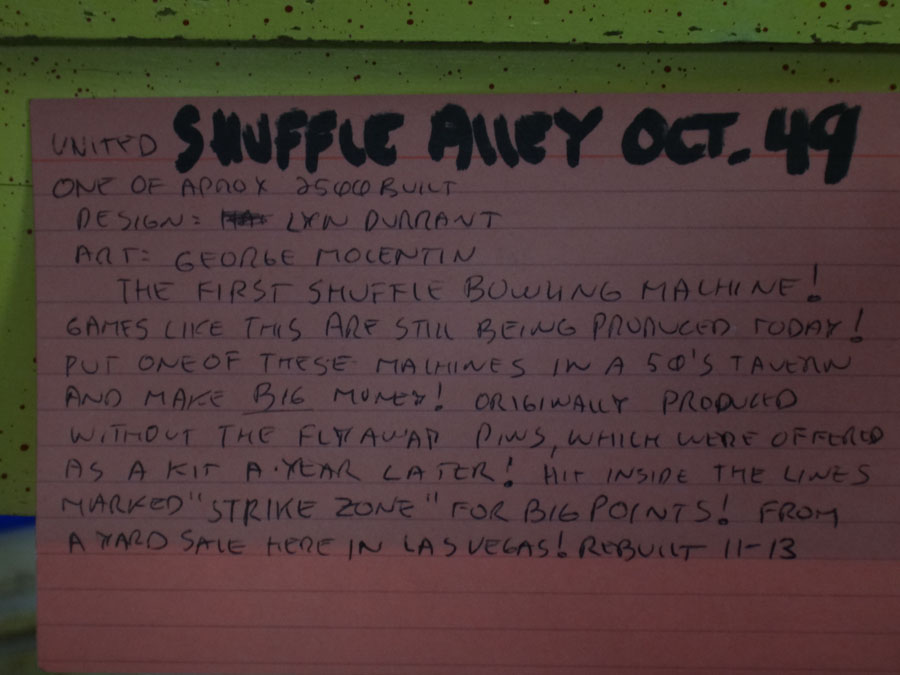 UNITED SHUFFLE ALLEY OCT. 49
ONE OF APROX 2500 BUILT
DESIGN: LYN DURRANT
ART: GEORGE MOLENTIN
THE FIRST SHUFFLE BOWLING MACHINE!
GAMES LIKE THIS ARE STILL BEING PRODUCED TODAY!
PUT ONE OF THESE MACHINES IN A 50'S TAVERN
AND MAKE BIG MONEY! ORIGINALLY PRODUCED
WITHOUT THE FLYAWAY PINS, WHICH WERE OFFERED
AS A KIT A YEAR LATER! HIT INSIDE THE LINES
MARKED "STRIKE ZONE" FOR BIG POINTS! FROM
A YARD SALE HERE IN LAS VEGAS! REBUILT 11-13